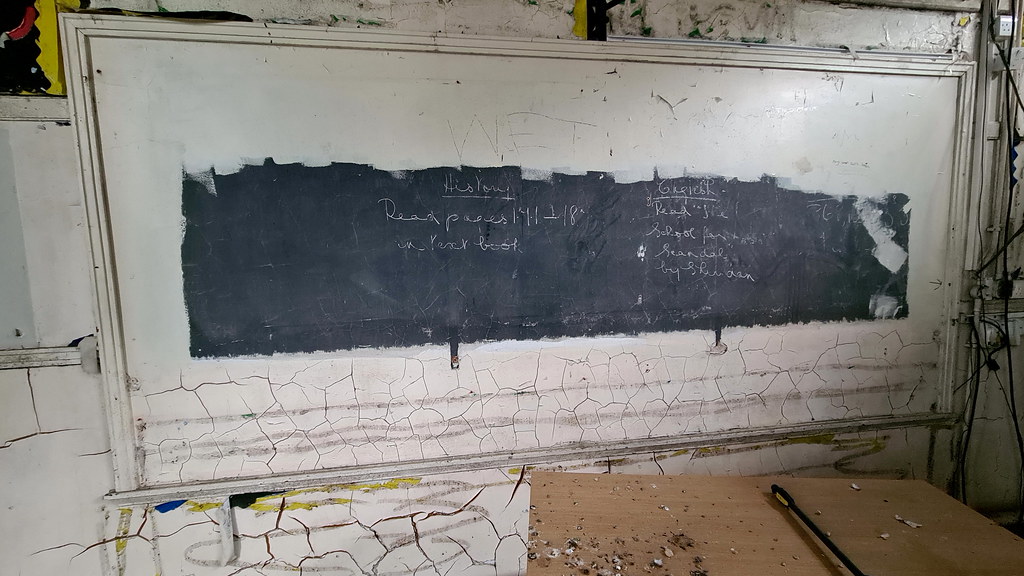 WET
History
Read pages
in text book
English
Read "The
School for
Scandal
by Sheridan